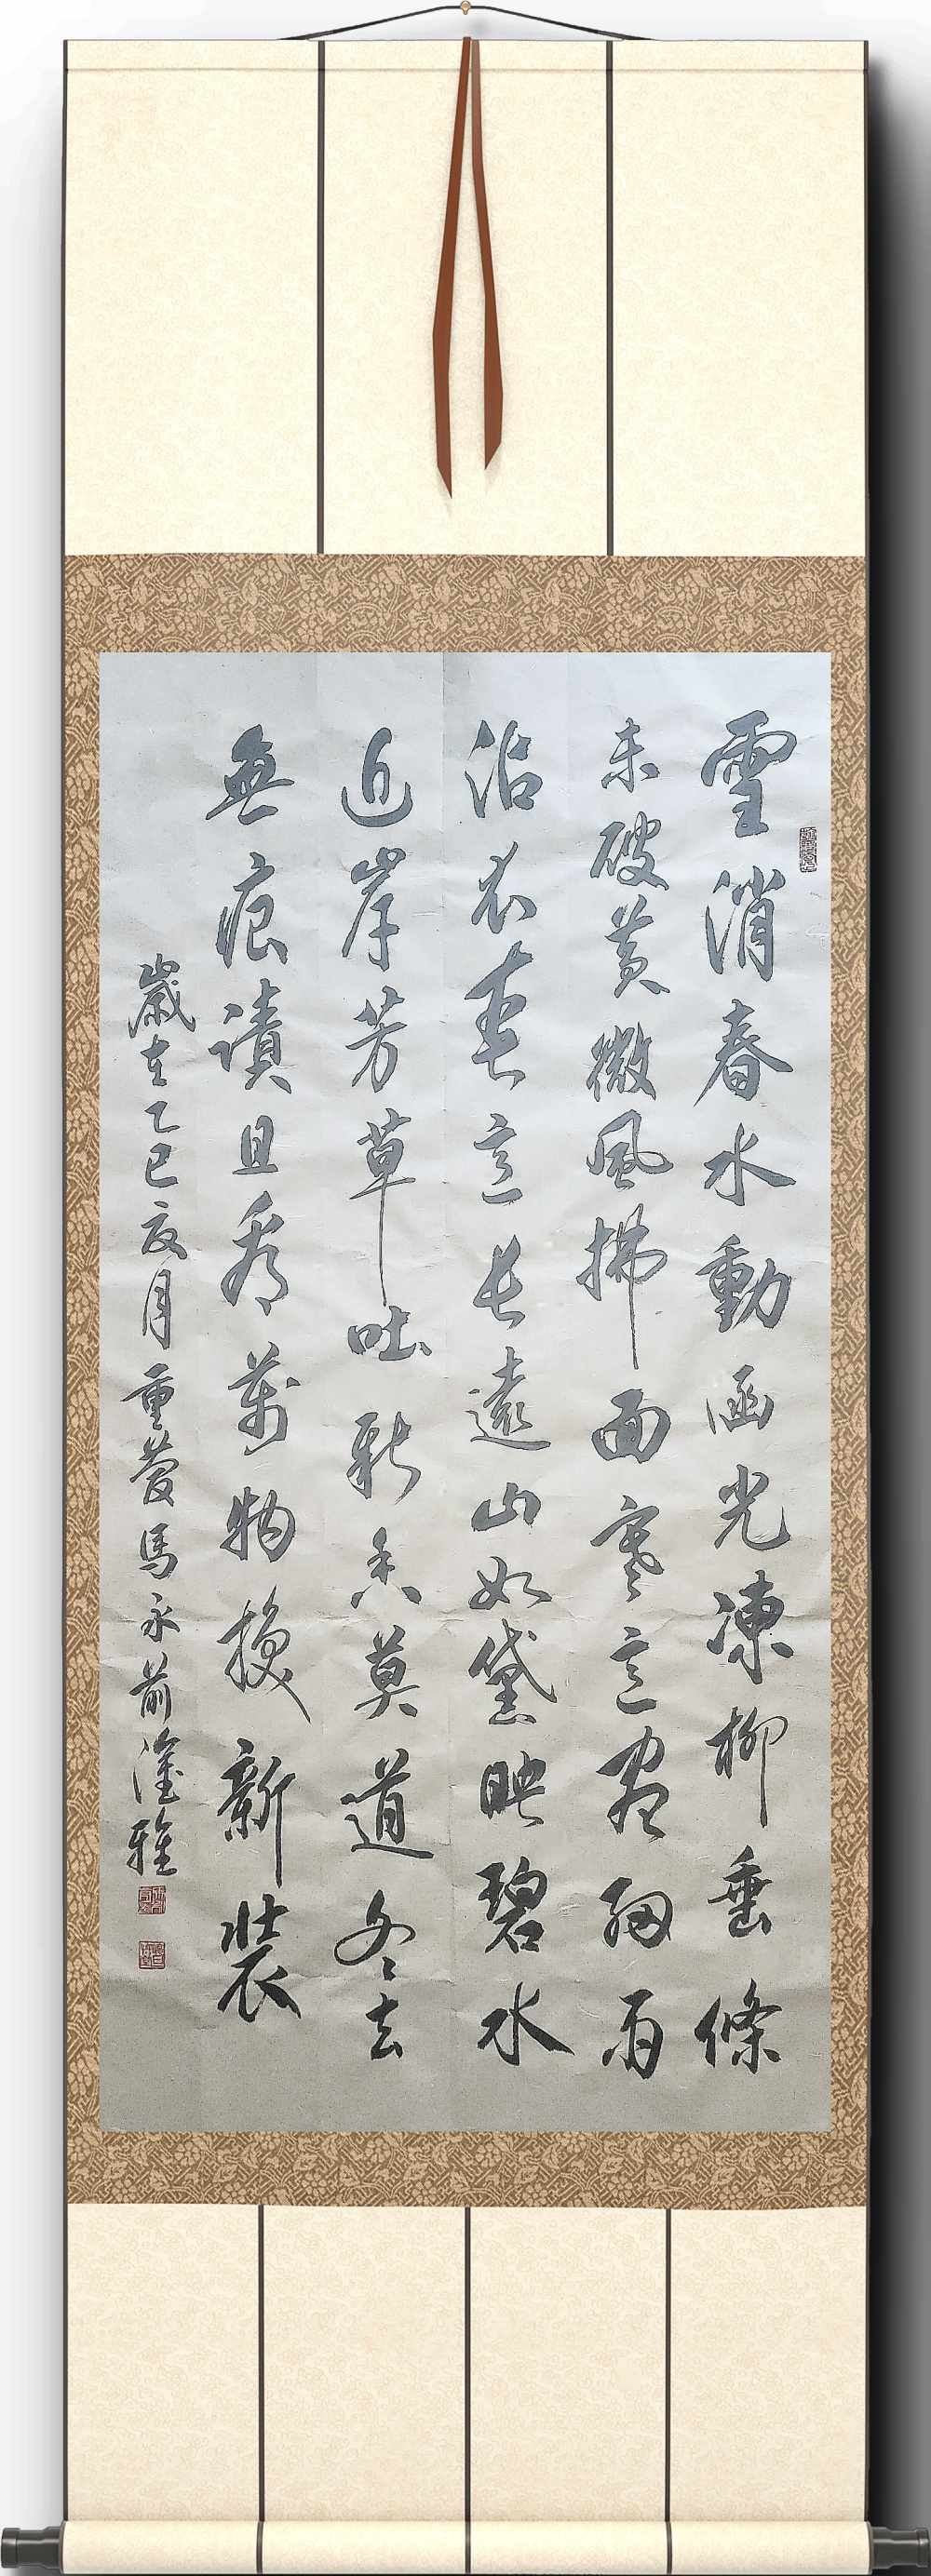 雪消春水動函光凍柳垂條
未破黃微風拂面寒意盡細雨
沾衣春意長遠山如黛映碧水
近岸芳草吐新香莫道冬去
無痕漬且看萬物換新裝
歲在乙巳夏月重慶馬永前